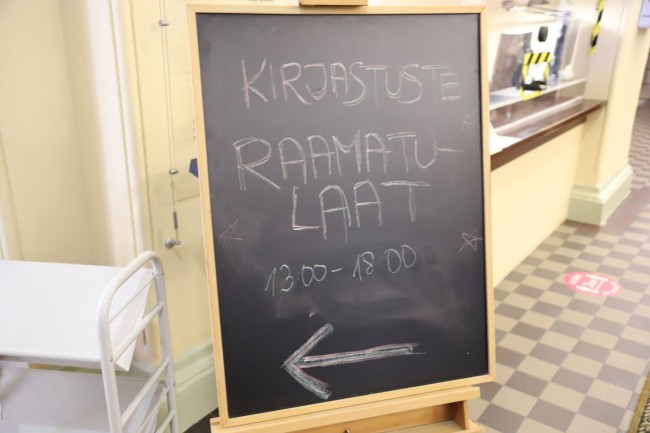 KIRJASTUSTE
RAAMATU-
LAAT
13:00 - 18:00